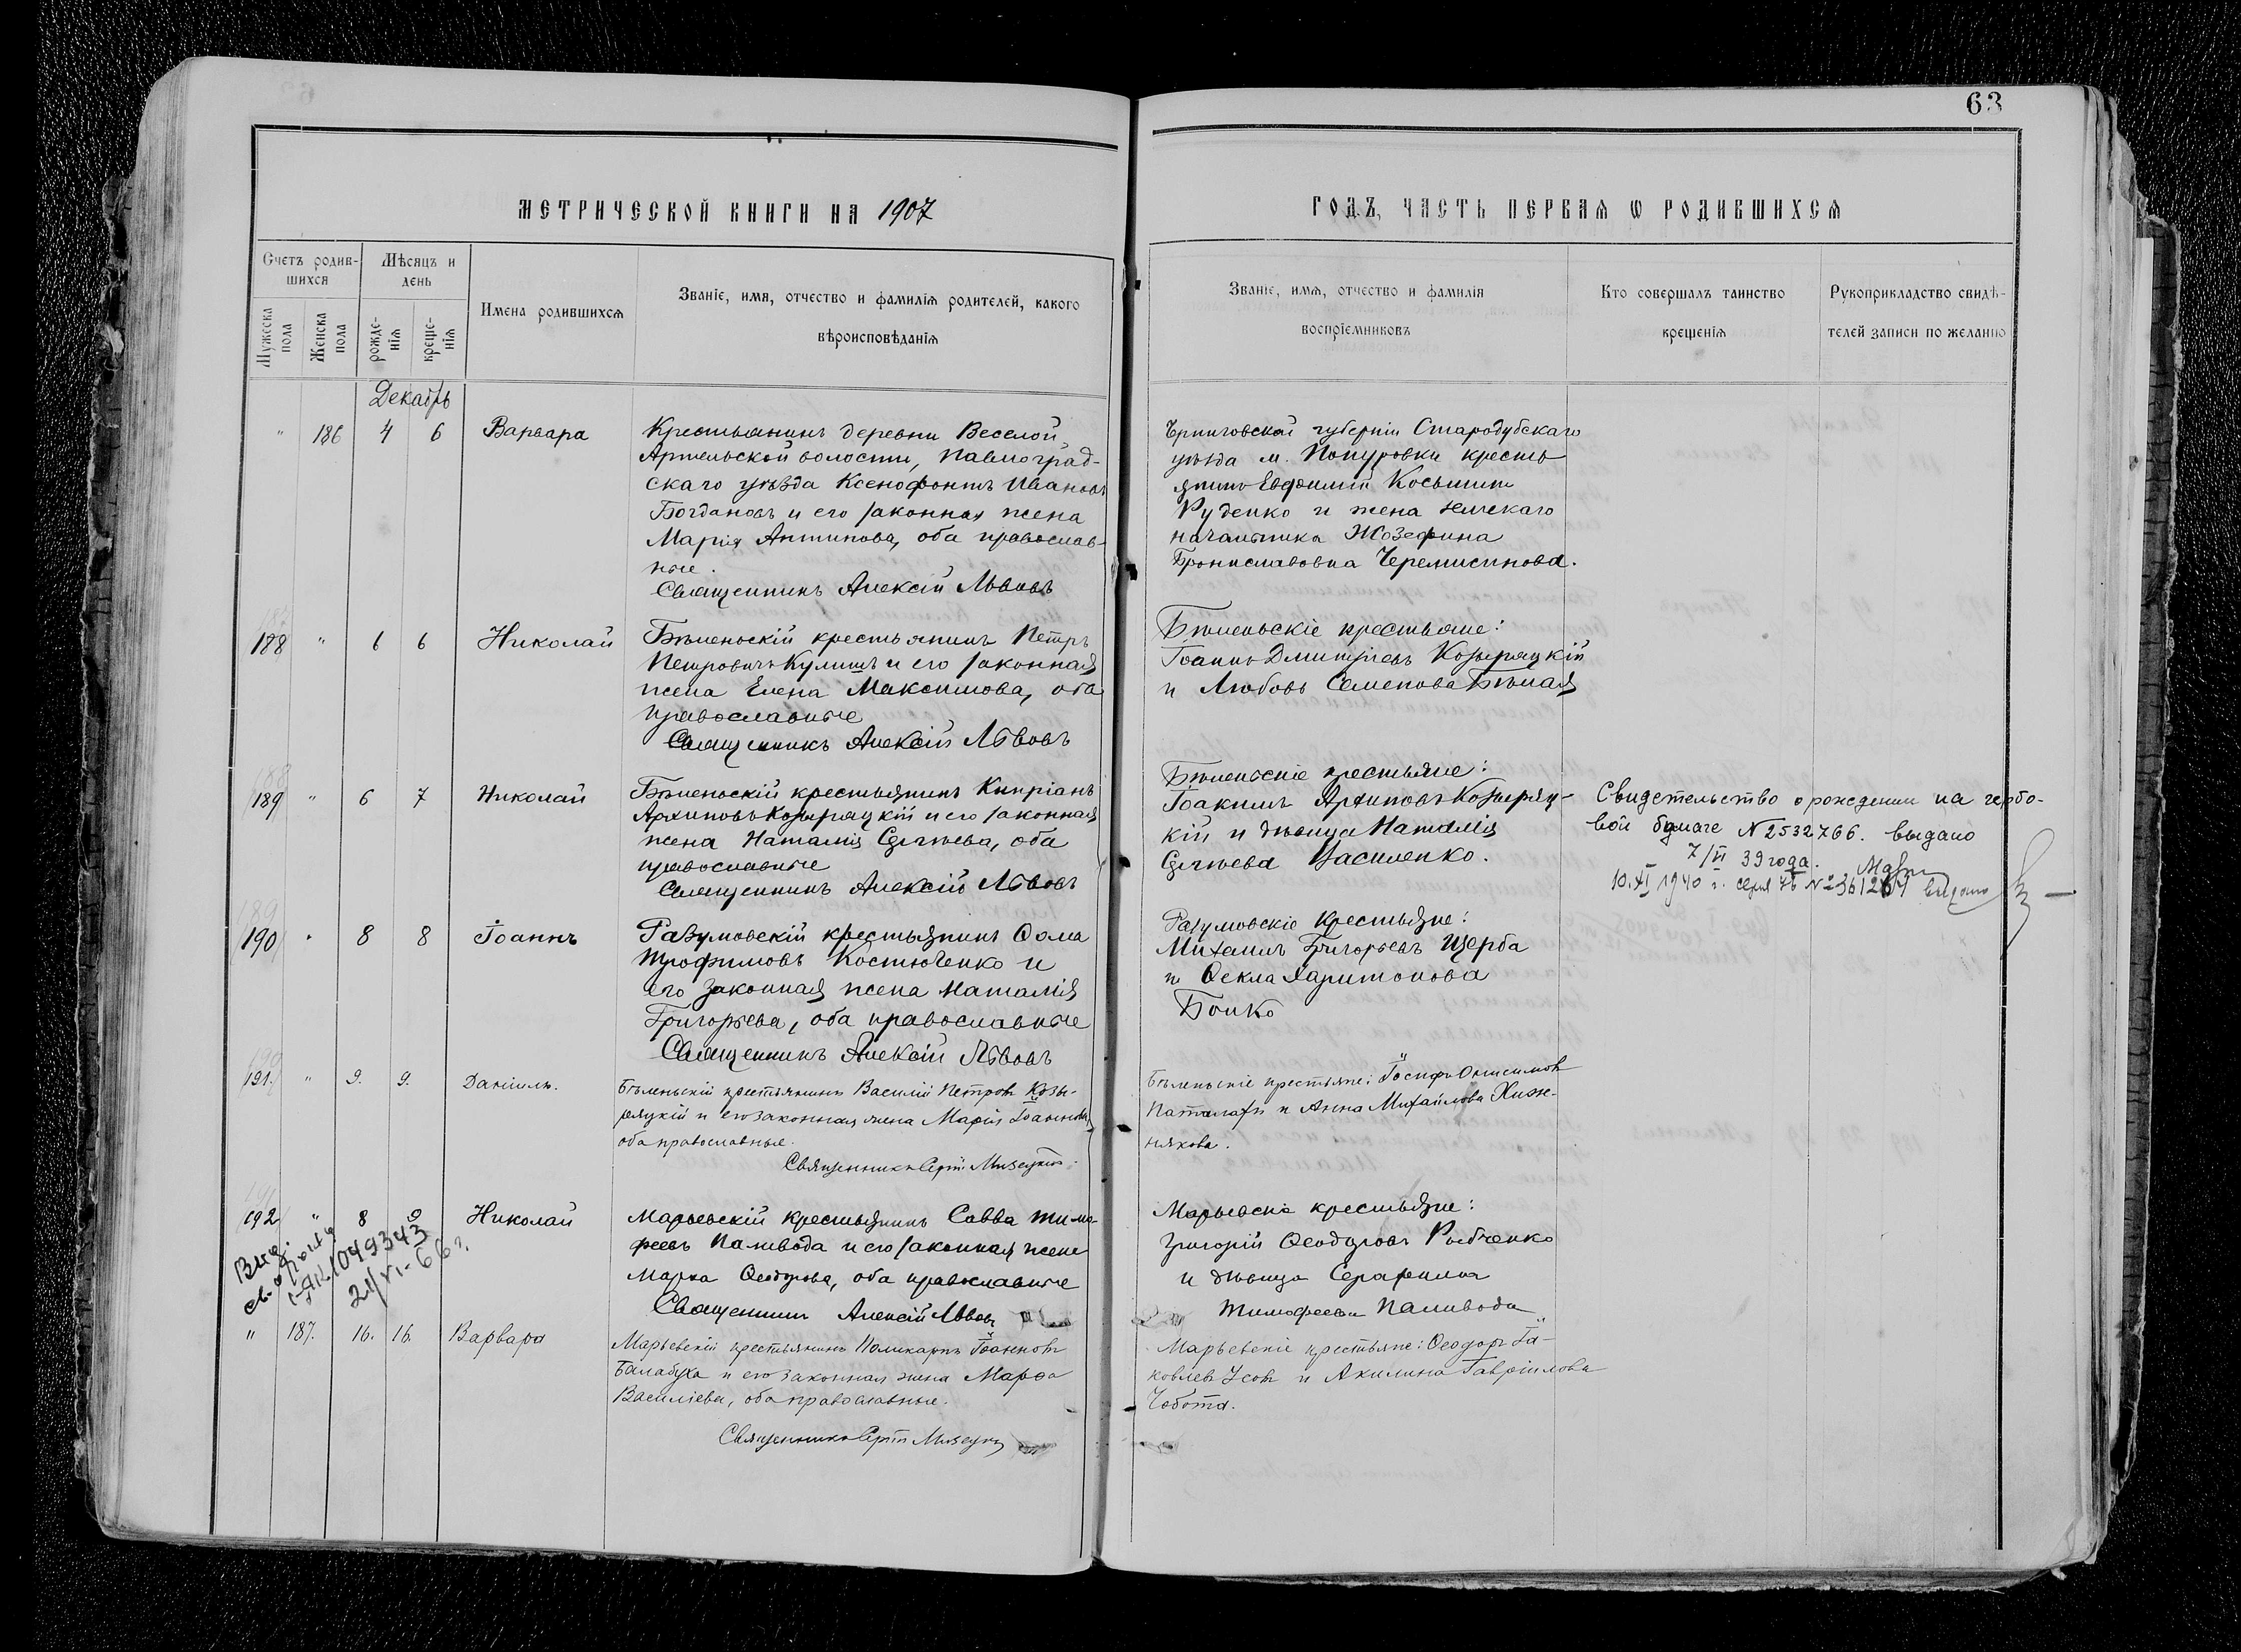 63
МЕТРИЧЕСКОЙ КНИГИ НА 1907
ГОДЪ, ЧАСТЬ ПЕРВАЯ Ѡ РОДИВШИХСЯ
Счетъ родив-
шихся
Мѣсяцъ и
день
Мужеска
пола
Женска
пола
рожде-
нія
креще-
нія
Имена родившихся
Званіе, имя, отчество и фамилія родителей, какого
вѣроисповѣданія
Званіе, имя, отчество и фамилія
воспріемниковъ
Кто совершалъ таинство
крещенія
Рукоприкладство свидѣ-
телей записи по желанію
Декабрь
" 186 4 6 Варвара
Крестьянинъ деревни Веселой
Артельской волости, Павлоград-
скаго уѣзда Ксенофонтъ Ивановъ
Богдановъ и его законная жена
Марія Антипова, оба православ-
ные.
Священникъ Алексій Львовъ
Черниговской губерніи Стародубскаго
уѣзда м. Попуровки кресть
янинъ Евфимій Косьминъ
Руденко и жена
начальника Жозефина
Брониславовна Черемисинова.
188 " 6 6 Николай
Бѣленьскій крестьянинъ Петръ
Петровичъ Кулишъ и его законная
жена Елена Максимова, оба
православные
Священникъ Алексій Львовъ
Бѣленьскіе крестьяне:
Іоаннъ Дмитріевъ Козыряцкій
и Любовь Семенова Бѣлая
189 " 6 7 Николай
Бѣленьскій крестьянинъ Кипріанъ
Архиповъ Козыряцкій и его законная
жена Наталія Сергѣева, оба
православные
Священникъ Алексій Львовъ
Бѣленьскіе крестьяне:
Іоакимъ Архиповъ Козыряц-
кій и дѣвица Наталія
Сергѣева Василенко.
Свидетельство о рождении на гербо-
вой бумаге N 2532766. выдано
7/VI 39 года.
10.XI 1940 г. серия № 361261 выдано
190 " 8 8 Іоаннъ
Разумовскій крестьянинъ Ѳома
Трофимовъ Костюченко и
его законная жена Наталія
Григорьева, оба православные
Священникъ Алексій Львовъ
Разумовскіе крестьяне:
Михаилъ Григорьевъ Щерба
и Ѳекла Харитонова
Бойко
191. " 9. 9. Даніилъ.
Бѣленьскій крестьянинъ Василій Петровъ Козы-
ряцкій и его законная жена Марія Іоаннова,
оба православные.
Священникъ Сергій
Бѣленьскіе крестьяне: Іосифъ Онисимовъ
Паталахъ и Анна Михайлова Хиж-
някова.
192 " 8 9 Николай
Марьевскій крестьянинъ Савва Тимо-
феевъ Паливода и его законная жена
Марѳа Ѳеодорова, оба православные
Священникъ Алексій Львовъ
Марьевскіе крестьяне:
Григорій Ѳеодоровъ Рыбченко
и дѣвица Серафима
Тимофеева Паливода
Выд.
св. о рожд
I-ЯК. 1049343
21/VI-66 г.
" 187. 16. 16. Варвара
Марьевскій крестьянинъ Поликарпъ Іоанновъ
Балабуха и его законная жена Марѳа
Василіева, оба православные.
Священникъ Сергій
Марьевскіе крестьяне: Ѳеодоръ Іа-
ковлевъ Усовъ и Акилина Гавріилова
Чобота.